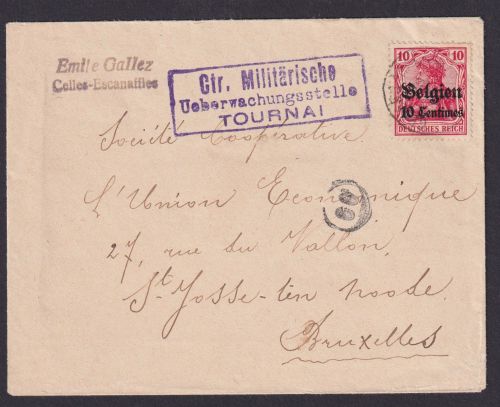 Emile Gallez
Celles-Escanaffles
Ctr. Militärische
Ueberwachungsstelle
TOURNAI
10 10
Belgien
10 Centimes
DEUTSCHES REICH
Société Coopérative
L'Union Economique
27, rue du Vallon,
St Josse-ten noode.
Bruxelles